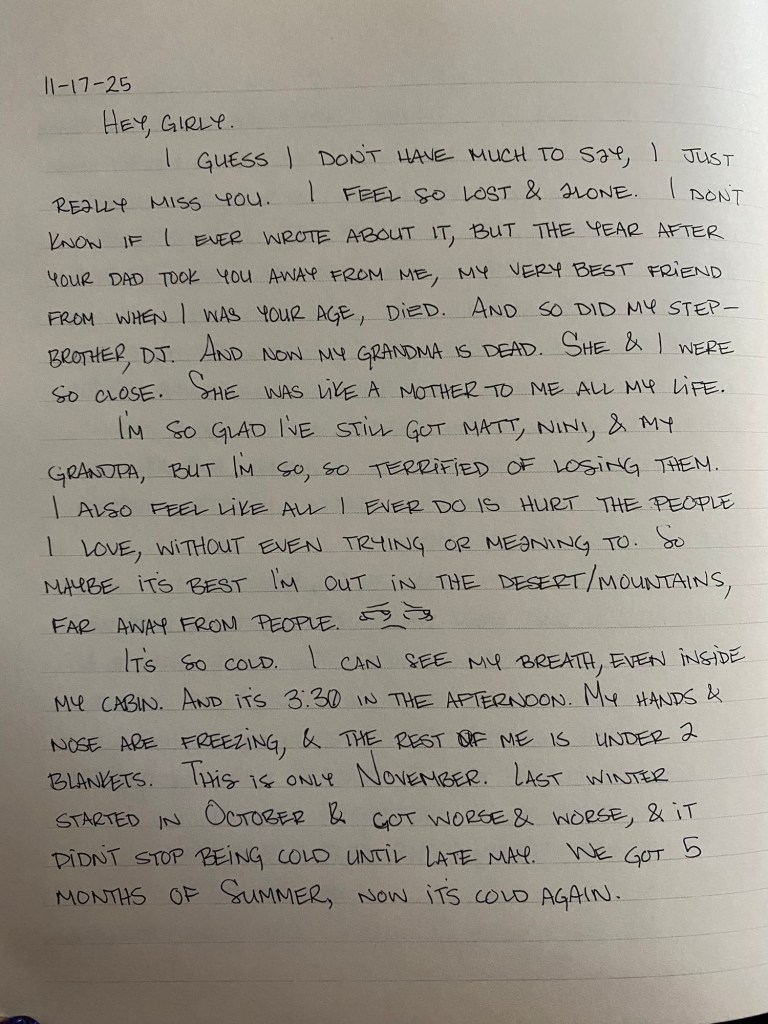 11-17-25
HEY, GIRLY.
I GUESS I DON'T HAVE MUCH TO SAY, I JUST
REALLY MISS YOU. I FEEL SO LOST & ALONE. I DON'T
KNOW IF I EVER WROTE ABOUT IT, BUT THE YEAR AFTER
YOUR DAD TOOK YOU AWAY FROM ME, MY VERY BEST FRIEND
FROM WHEN I WAS YOUR AGE, DIED. AND SO DID MY STEP-
BROTHER, DJ. AND NOW MY GRANDMA IS DEAD. SHE & I WERE
SO CLOSE. SHE WAS LIKE A MOTHER TO ME ALL MY LIFE.
I'M SO GLAD I'VE STILL GOT MATT, NINI, & MY
GRANDPA, BUT I'M SO, SO TERRIFIED OF LOSING THEM.
I ALSO FEEL LIKE ALL I EVER DO IS HURT THE PEOPLE
I LOVE, WITHOUT EVEN TRYING OR MEANING TO. SO
MAYBE IT'S BEST I'M OUT IN THE DESERT/MOUNTAINS,
FAR AWAY FROM PEOPLE.
IT'S SO COLD. I CAN SEE MY BREATH, EVEN INSIDE
MY CABIN. AND IT'S 3:30 IN THE AFTERNOON. MY HANDS &
NOSE ARE FREEZING, & THE REST OF ME IS UNDER 2
BLANKETS. THIS IS ONLY NOVEMBER. LAST WINTER
STARTED IN OCTOBER & GOT WORSE & WORSE, & IT
DIDN'T STOP BEING COLD UNTIL LATE MAY. WE GOT 5
MONTHS OF SUMMER, NOW IT'S COLD AGAIN.